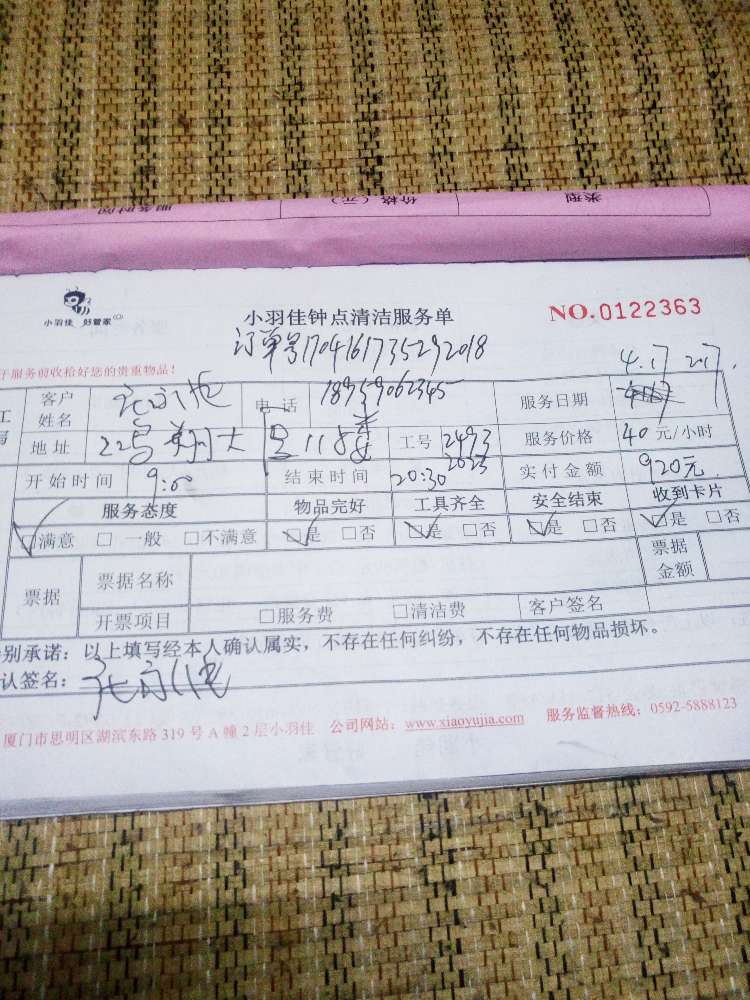 类型
价格（元）
服务时间
小羽佳 好管家
小羽佳钟点清洁服务单
NO.0122363
订单号1704161735292018
仔服务前收拾好您的贵重物品！
4.17
客户姓名
电话
18959062345
服务日期
地址
22号
工号
2493
2023
服务价格 40 元/小时
开始时间 9:00
结束时间 20:30
实付金额 920元
服务态度 物品完好 工具齐全 安全结束 收到卡片
满意 一般 不满意 是 否 是 否 是 否 是 否
票据 票据名称 票据金额
开票项目 服务费 清洁费 客户签名
别承诺：以上填写经本人确认属实，不存在任何纠纷，不存在任何物品损坏。
认签名：
厦门市思明区湖滨东路 319 号 A 幢 2 层小羽佳 公司网站：www.xiaoyujia.com 服务监督热线：0592-5888123